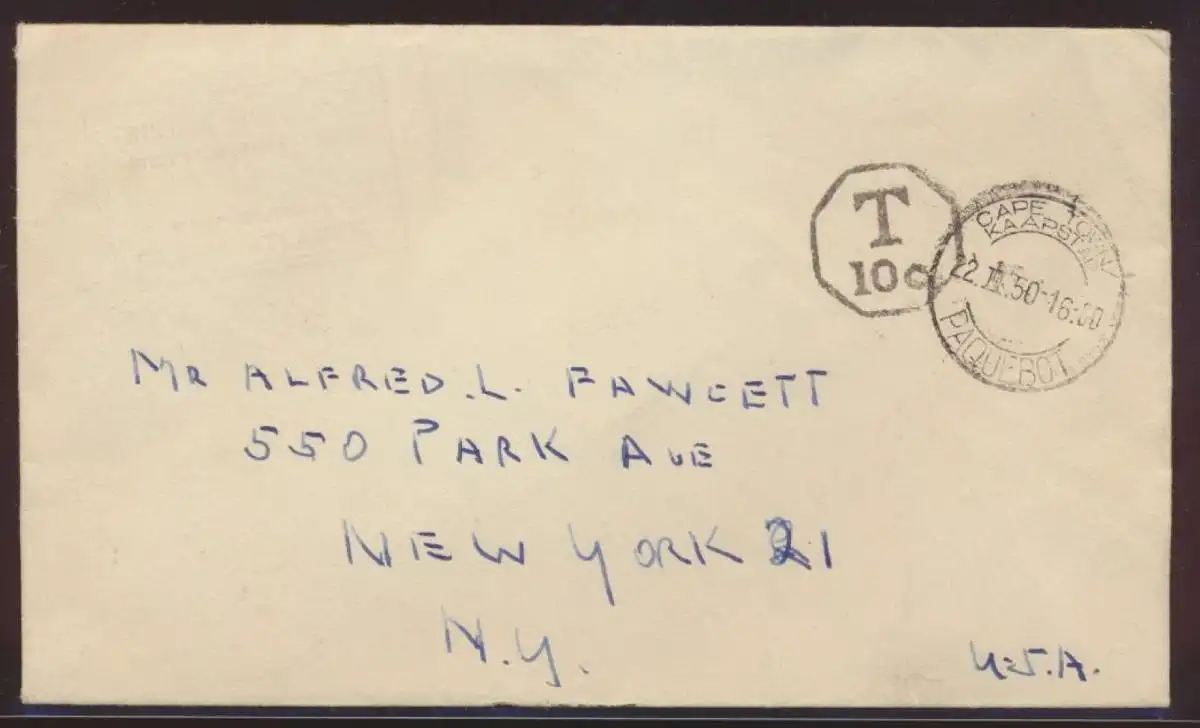 T
10c
CAPE TOWN
KAAPSTAD
22.III.50-16:00
PAQUEBOT
MR ALFRED.L. FAWCETT
550 PARK AVE
NEW YORK 21
N.Y.
U.S.A.